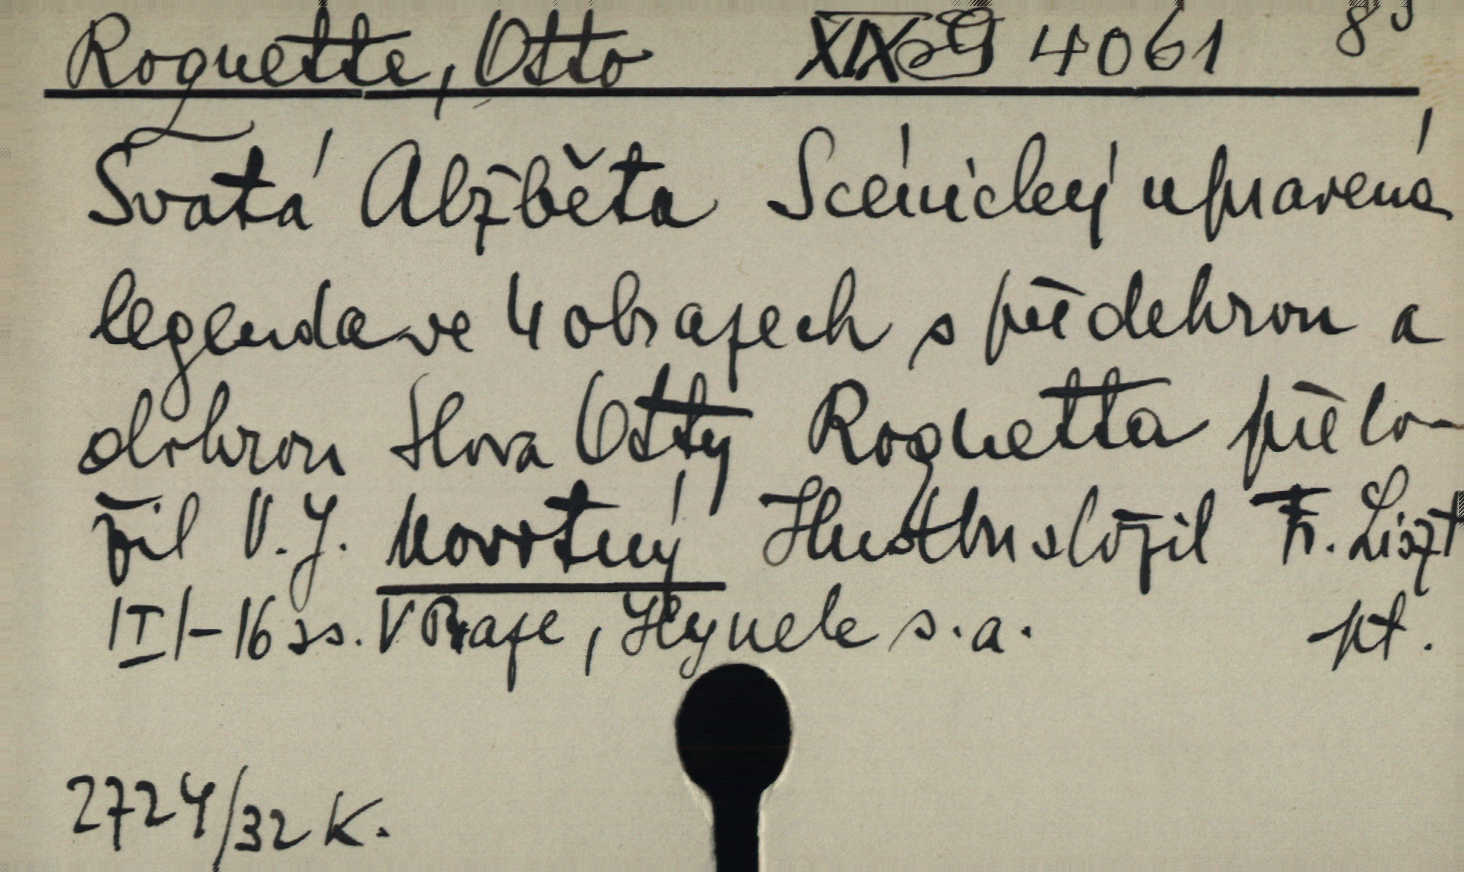 Roquette, Otto XIX 4061 8°
Svatá Alžběta Scénický upravená
legenda ve 4 obrazech s předehrou a
dohrou Slova Otty Roquetta přelo-
žil V. J. Novotný Hudbu složil Fr. Liszt
I 1-16 ss. V Praze, Hynek s. a. pt.
2724/32 K.